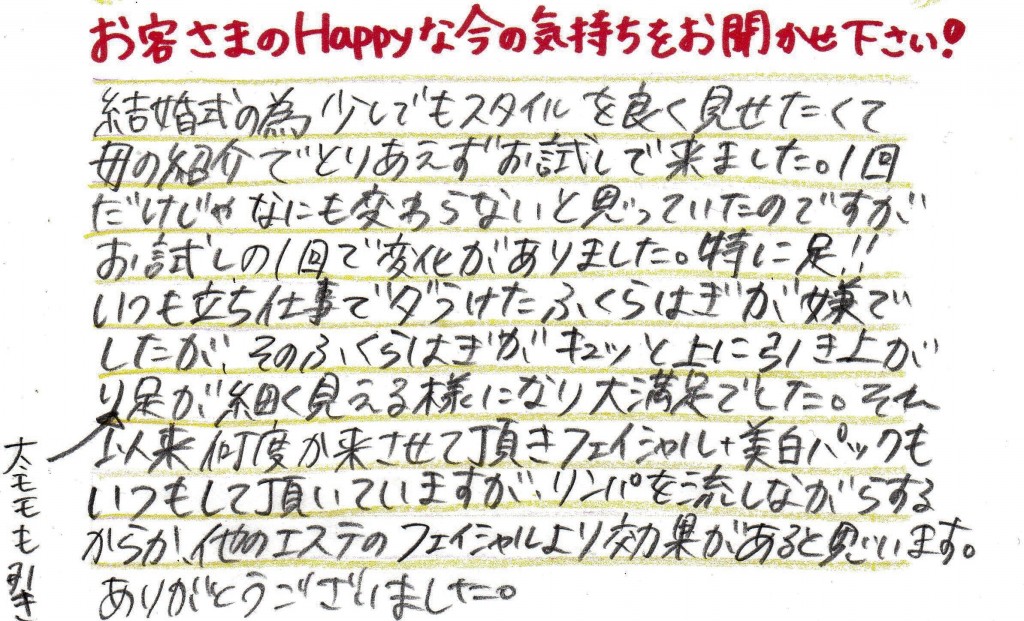 お客さまのHappyな今の気持ちをお聞かせ下さい!
結婚式の為少しでもスタイルを良く見せたくて
母の紹介でとりあえずお試しで来ました。1回
だけじゃなにも変わらないと思っていたのですが
お試しの1回で変化がありました。特に足!!
いつも立ち仕事でダラけたふくらはぎが嫌で
したが、そのふくらはぎがキュッと上に引き上が
り足が細く見える様になり大満足でした。それ
以来何度か来させて頂きフェイシャル+美白パックも
いつもして頂いていますが、リンパを流しながらする
からか、他のエステのフェイシャルより効果があると思います。
ありがとうございました。
太モモも引き